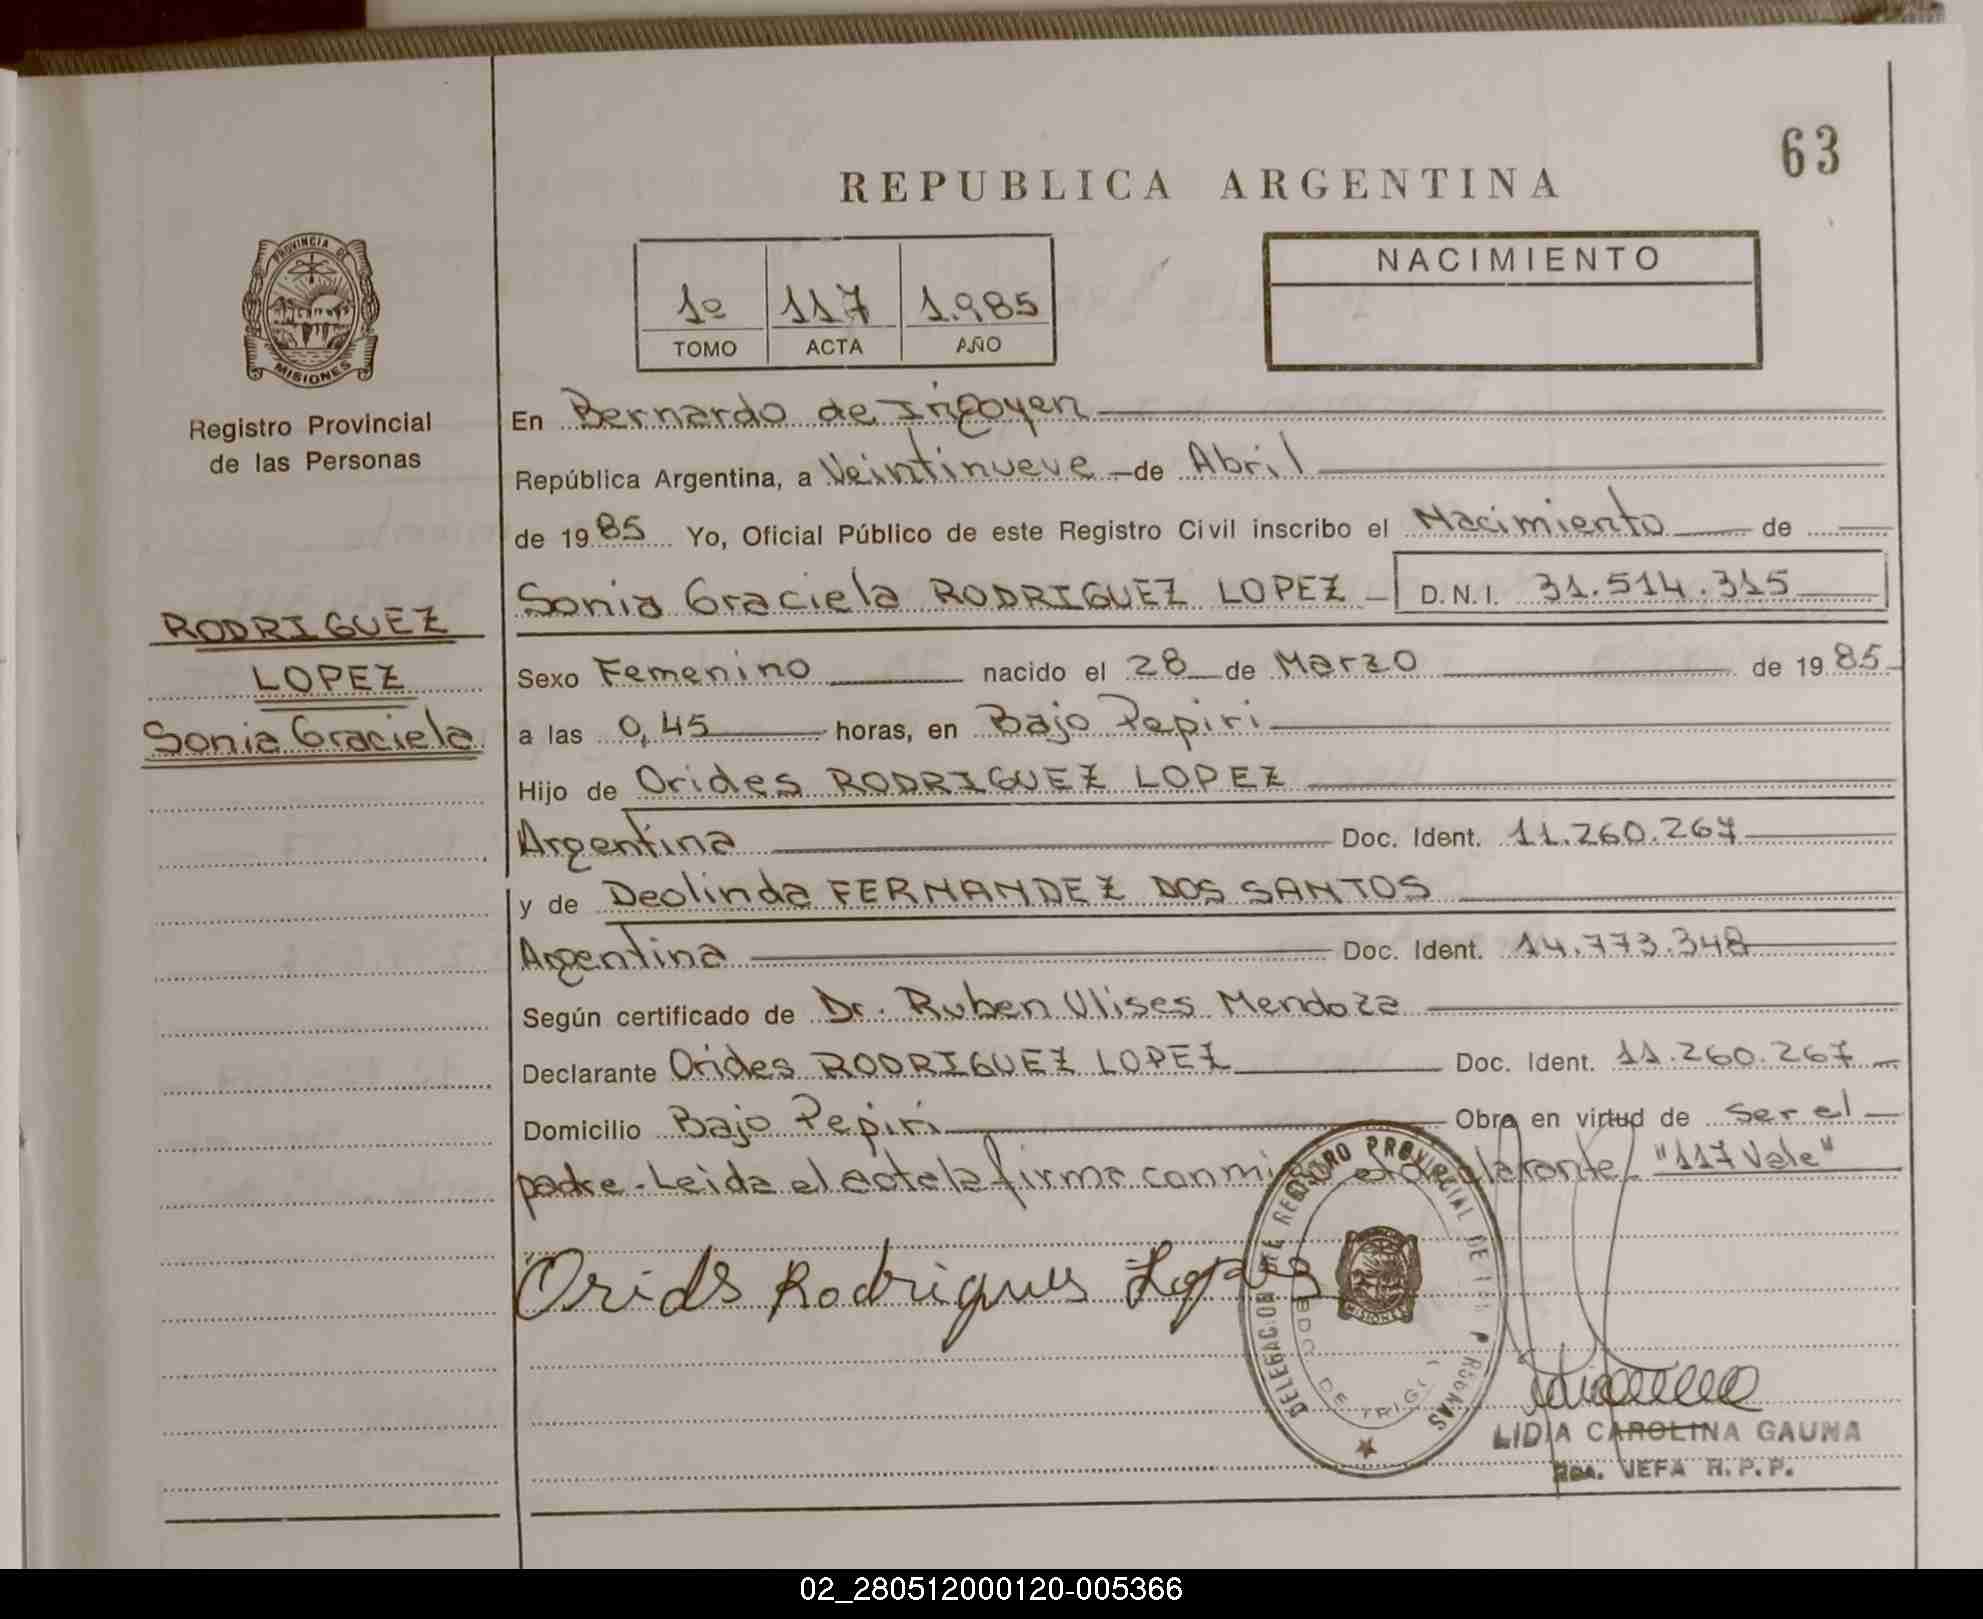 63
REPUBLICA ARGENTINA
PROVINCIA DE
MISIONES
Registro Provincial
de las Personas
1º 117 1.985
TOMO ACTA AÑO
NACIMIENTO
En Bernardo de Irigoyen
República Argentina, a Veintinueve de Abril
de 19 85 Yo, Oficial Público de este Registro Civil inscribo el Nacimiento de
Sonia Graciela RODRIGUEZ LOPEZ D.N.I. 31.514.315
RODRIGUEZ
LOPEZ
Sonia Graciela
Sexo Femenino nacido el 28 de Marzo de 19 85
a las 0,45 horas, en Bajo Pepiri
Hijo de Orides RODRIGUEZ LOPEZ
Argentina Doc. Ident. 11.260.267
y de Deolinda FERNANDEZ DOS SANTOS
Argentina Doc. Ident. 14.773.348
Según certificado de Dr. Ruben Ulises Mendoza
Declarante Orides RODRIGUEZ LOPEZ Doc. Ident. 11.260.267
Domicilio Bajo Pepiri Obra en virtud de ser el
padre. Leida el acta la firma conmigo el declarante "117 Vale"
Orids Rodrigues Lopes
DELEGACION DE REGISTRO PROVINCIAL DE
BDO DE IRIGO
MISIONES
LIDIA CAROLINA GAUNA
JEFA R.P.P.
02_280512000120-005366